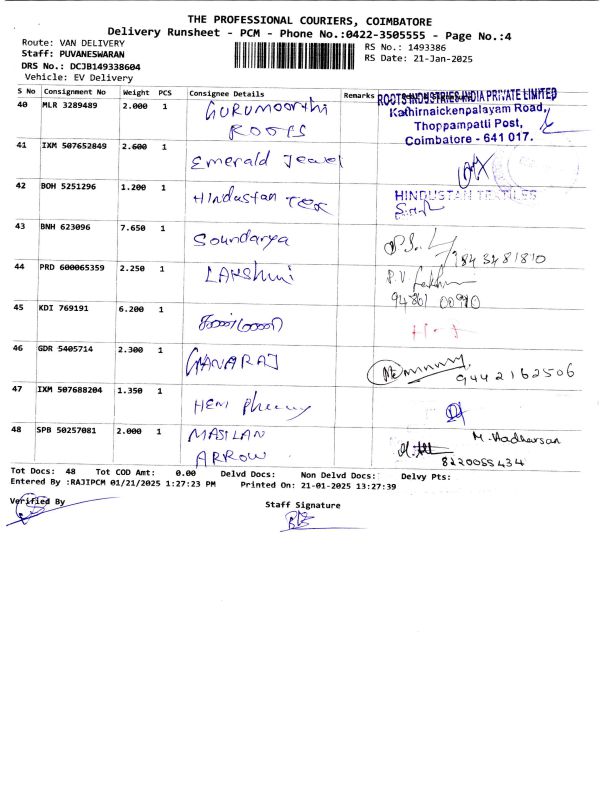 THE PROFESSIONAL COURIERS, COIMBATORE
Delivery Runsheet - PCM - Phone No.:0422-3505555 - Page No.:4
Route: VAN DELIVERY
RS No.: 1493386
Staff: PUVANESWARAN
RS Date: 21-Jan-2025
DRS No.: DCJB149338604
Vehicle: EV Delivery
S No Consignment No Weight PCS Consignee Details Remarks
ROOTS INDUSTRIES INDIA PRIVATE LIMITED
Kathirnaickenpalayam Road,
Thoppampatti Post,
Coimbatore - 641 017.
40 MLR 3289489 2.000 1 GURUMOORTHI
ROOTS
41 IXM 507652849 2.600 1 Emerald Jewel
42 BOH 5251296 1.200 1 Hindustan Tex
HINDUSTAN TEXTILES
43 BNH 623096 7.650 1 Soundarya
9843781810
44 PRD 600065359 2.250 1 LAKshmi
P.V
45 KDI 769191 6.200 1
46 GDR 5405714 2.300 1 GANARAJ
9442162506
47 IXM 507688204 1.350 1 HENI
48 SPB 50257081 2.000 1 MASILAN
ARROW
8220055434
Tot Docs: 48 Tot COD Amt: 0.00 Delvd Docs: Non Delvd Docs: Delvy Pts:
Entered By :RAJIPCM 01/21/2025 1:27:23 PM Printed On: 21-01-2025 13:27:39
Verified By
Staff Signature